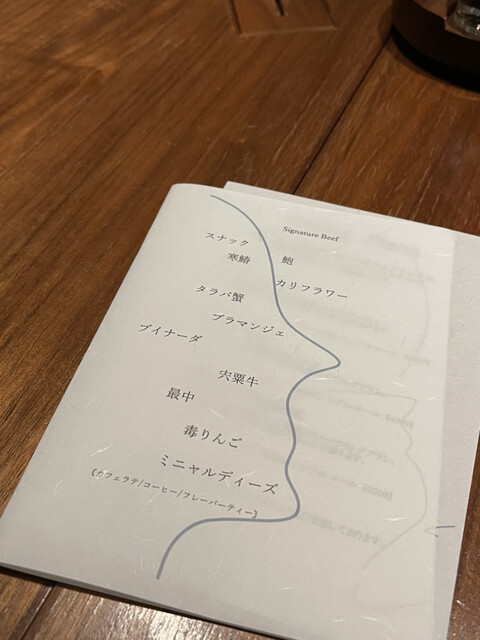 Signature Beef
スナック
寒鰆　鮑
カリフラワー
タラバ蟹
ブラマンジェ
ブイナーダ
宍粟牛
最中
毒りんご
ミニャルディーズ
《カフェラテ/コーヒー/フレーバーティー》